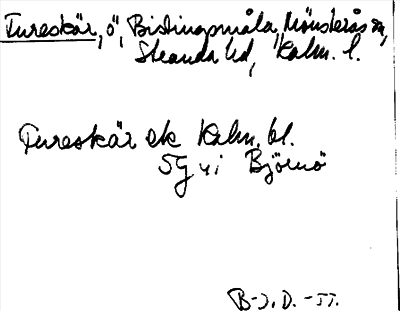 Tureskär, ö, Bistingsmåla, Mönsterås sn,
Stranda hd, Kalm. l.
Tureskär ek Kalm. bl.
5G 4i Björnö
B-J. D. -55.